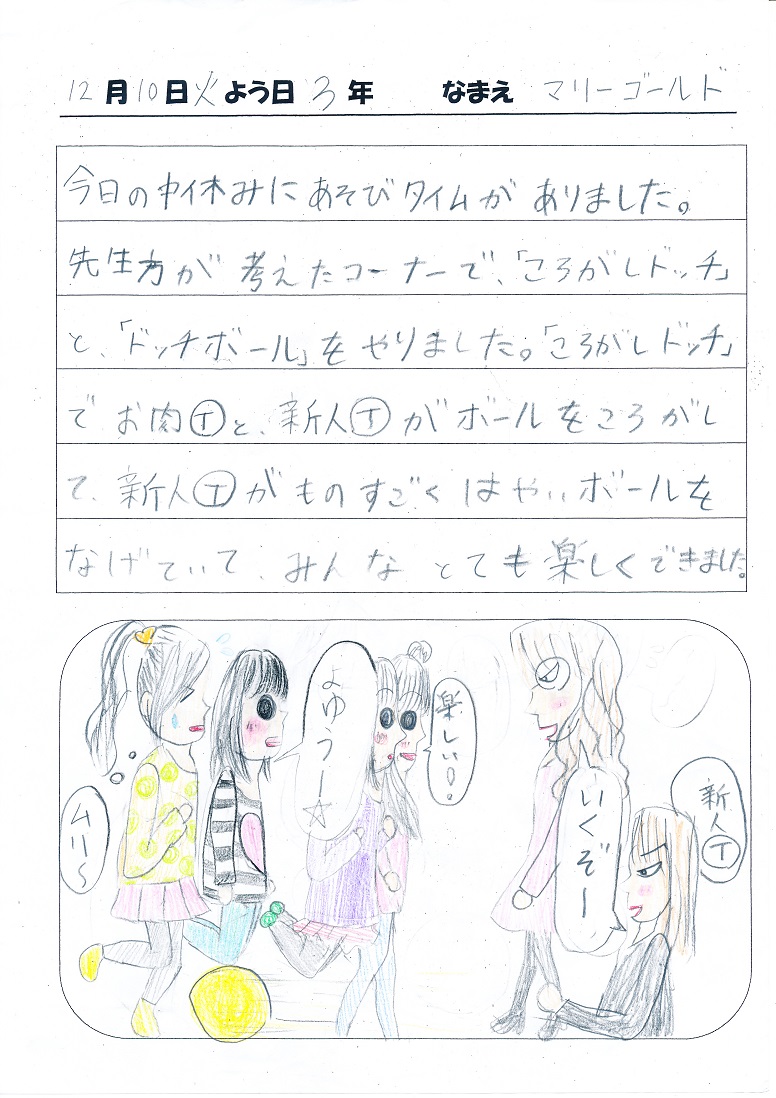 12月10日火よう日3年 なまえ マリーゴールド
今日の中休みにあそびタイムがありました。
先生方が考えたコーナーで、「ころがしドッチ」
と、「ドッチボール」をやりました。「ころがしドッチ」
でお肉Ⓣと、新人Ⓣがボールをころがし
て、新人Ⓣがものすごくはやいボールを
なげていて、みんなとても楽しくできました。
ムリ〜
よゆうー☆
楽しい!
いくぞー
新人Ⓣ